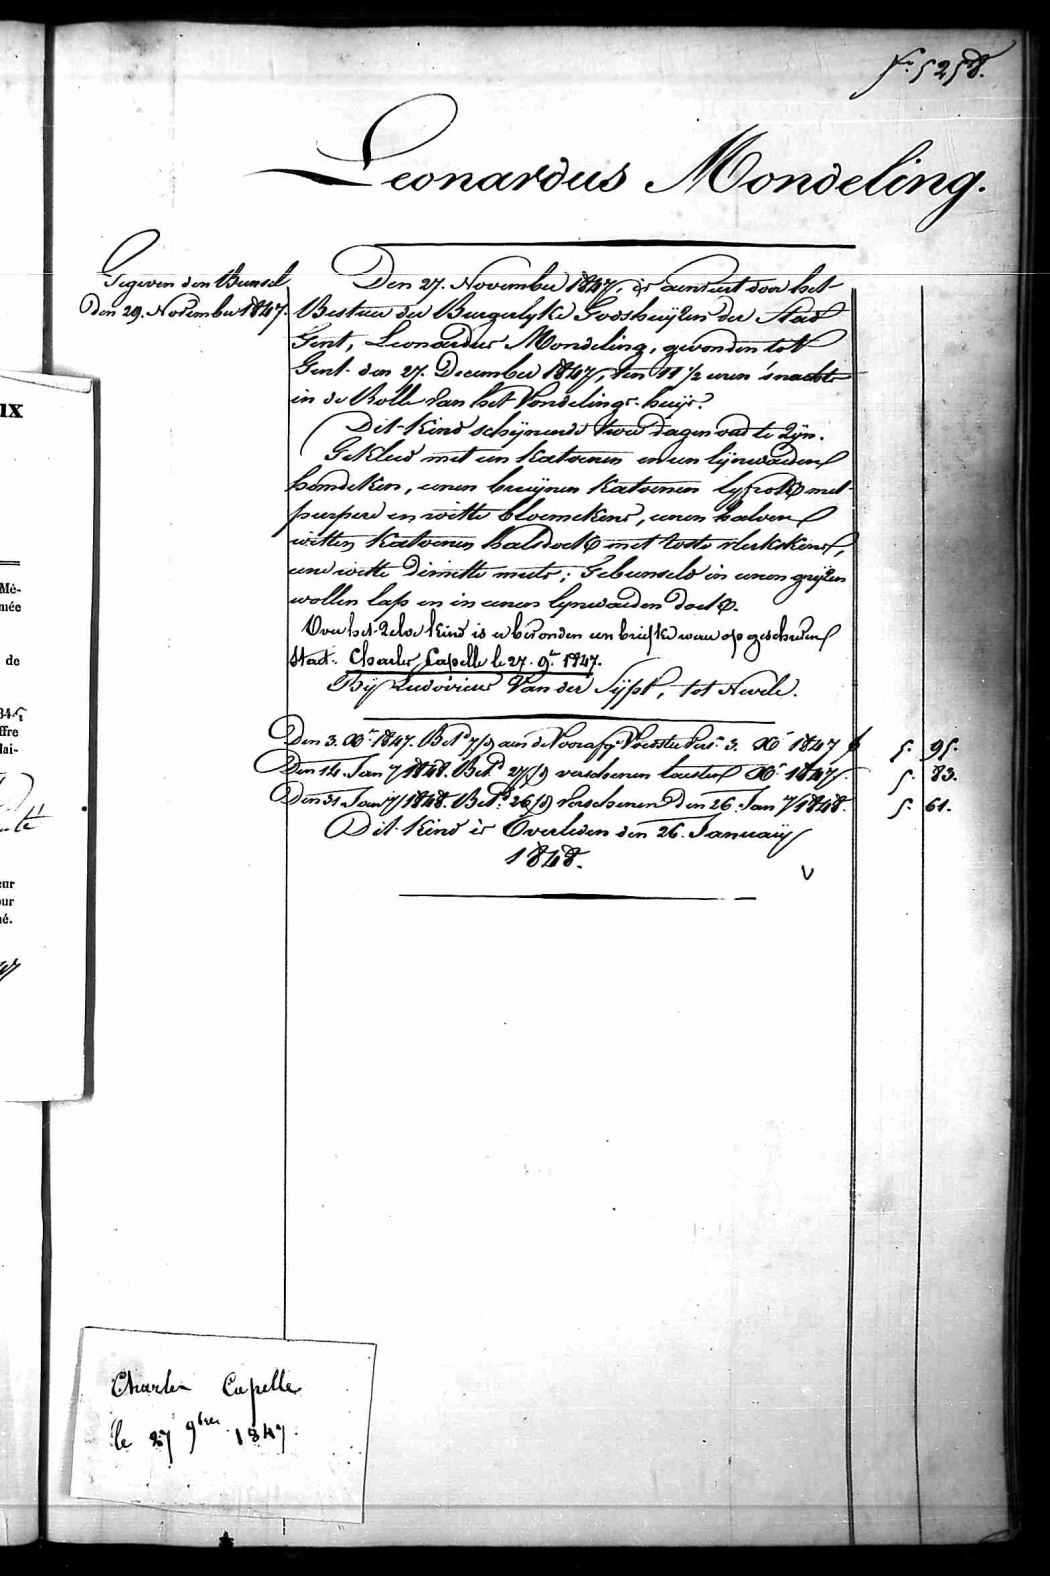 fo. 5258.
Leonardus Mondeling.
Gegeven den Bunsel
den 29. November 1847.
Den 27. November 1847, is aenveert door het
Bestuer der Burgerlyke Godshuyzen der Stad
Gent, Leonardus Mondeling, gevonden tot
Gent den 27. December 1847, ten 11 1/2 uren s'nachts
in de Rolle van het Vondelings-huys.
Dit Kind schijnende twee dagen oud te zijn.
Gekleed met een Katoenen en een lijnwaeden
hemdeken, eenen bruijnen Katoenen lyfrok met
purpere en witte bloemekens, eenen halven
witten Katoenen halsdoek met roste vlekskens,
eene witte Dimitte muts; Gebunseld in eenen grijzen
wollen lap en in eenen lynwaeden doek.
Over het zelve kind is er bevonden een briefke waer op geschreven
staet: Charles Capelle le 27. 9r 1847.
Bij Ludovicus Van der Sijpt, tot Nevele.
Den 3. Xr 1847. Bet. 7/9 aen de Voorafg. Voedster Vers. 3. Xr 1847 f 5. 95.
Den 14. Jan 7/1848. Bet. 27/9 verschenen laesten Xr 1847. 5. 83.
Den 31 Jan 7/1848. Bet. 26/9 verschenen Den 26. Jan 7/1848. 5. 61.
Dit Kind is Overleden den 26. Januarij
1848.
V
ux
Mé-
mée
de
ffre
Mai-
eur
our
né.
Charles Capelle
le 27 9bre 1847.